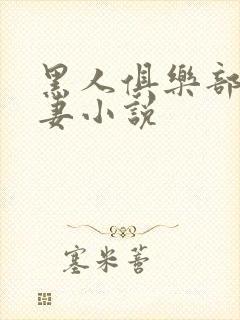 黑人俱樂部
妻小說
塞米蒈